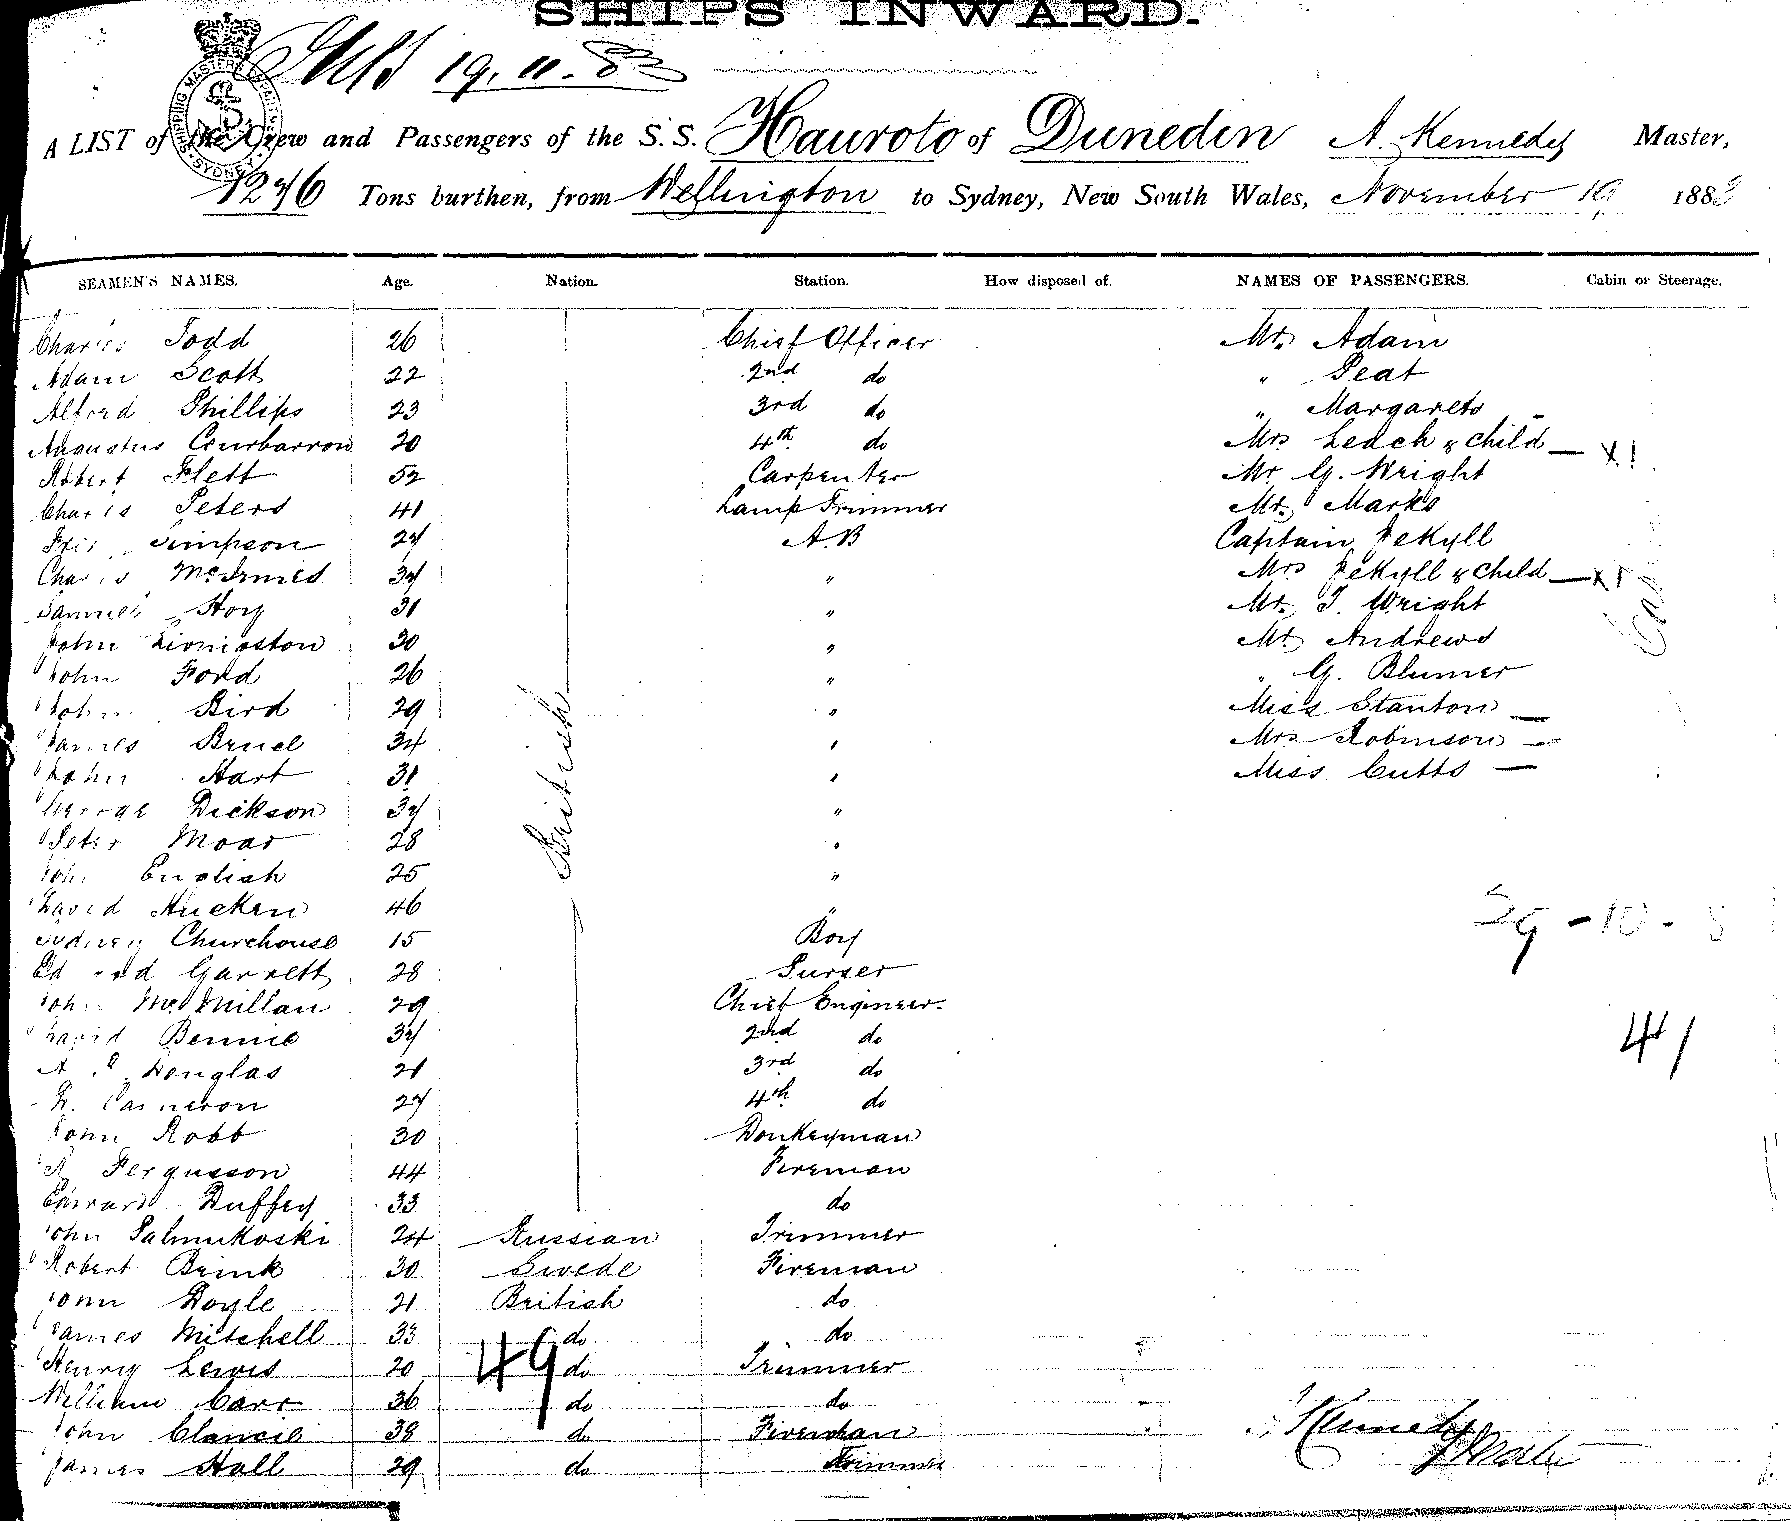 SHIPS INWARD.
19. 11. 83
SHIPPING MASTER'S DEPARTMENT SYDNEY
A LIST of the Crew and Passengers of the S.S. Hauroto of Dunedin A. Kennedy Master,
1276 Tons burthen, from Wellington to Sydney, New South Wales, November 19 1883
SEAMEN'S NAMES. Age. Nation. Station. How disposed of. NAMES OF PASSENGERS. Cabin or Steerage.
Charles Todd 26 Chief Officer Mr. Adam
Adam Scott 22 2nd do " Peat
Alford Phillips 23 3rd do " Margarets
Augustus Courbarron 20 4th do Mrs Leach & child — X1
Robert Flett 52 Carpenter Mr G. Wright
Charles Peters 41 Lamp Trimmer Mr. Marks
Simpson 27 A.B Captain Jekyll
Charles McInnes 37 " Mrs Jekyll & child — X1
Samuel Hoy 31 " Mr. T. Wright
John Livingston 30 " Mr Andrews
John Ford 26 " " G. Blumer
John Bird 29 " Miss Stanton —
James Bruce 34 " Mrs Robinson —
John Hart 31 " Miss Cutts —
George Dickson 37 "
Peter Moar 28 "
British
John English 25 "
David Hucken 46 "
Sydney Churchouse 15 Boy
29 - 10 - 8
Edward Garrett 28 Purser
John McMillan 29 Chief Engineer
David Bennie 37 2nd do
41
A Douglas 21 3rd do
Cameron 27 4th do
John Robb 30 Donkeyman
A Fergusson 44 Fireman
Edward Duffey 33 do
John Salmukoski 24 Russian Trimmer
Robert Brink 30 Swede Fireman
John Doyle 21 British do
James Mitchell 33 do do
49
Henry Lewis 20 do Trimmer
William Carr 36 do do
John Clancie 38 do Fireman
Kennedy
James Hall 29 do Trimmer
Master